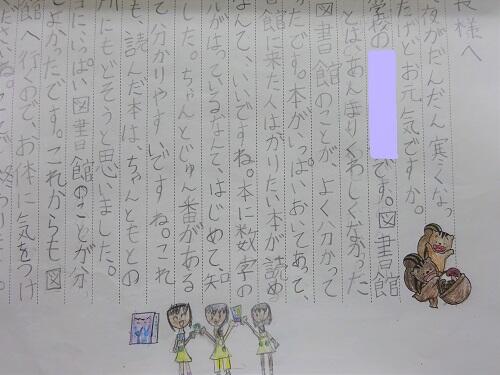 長様へ
夜がだんだん寒くなっ
たけどお元気ですか。
学校の です。図書館
とは、あんまりくわしくなかった
図書館のことが、よく分かって
ったです。本がいっぱいおいてあって、
書館に来た人はかりたい本が読め
なんて、いいですね。本に数字の
ルがはっているなんて、はじめて、知
した。ちゃんとじゅん番がある
て分かりやすいですね。これ
も、読んだ本は、ちゃんともとの
所にもどそうと思いました。
にいっぱい図書館のことが分
よかったです。これからも図
館へ行くので、お体に気をつけ
ださいね。これで終わりま